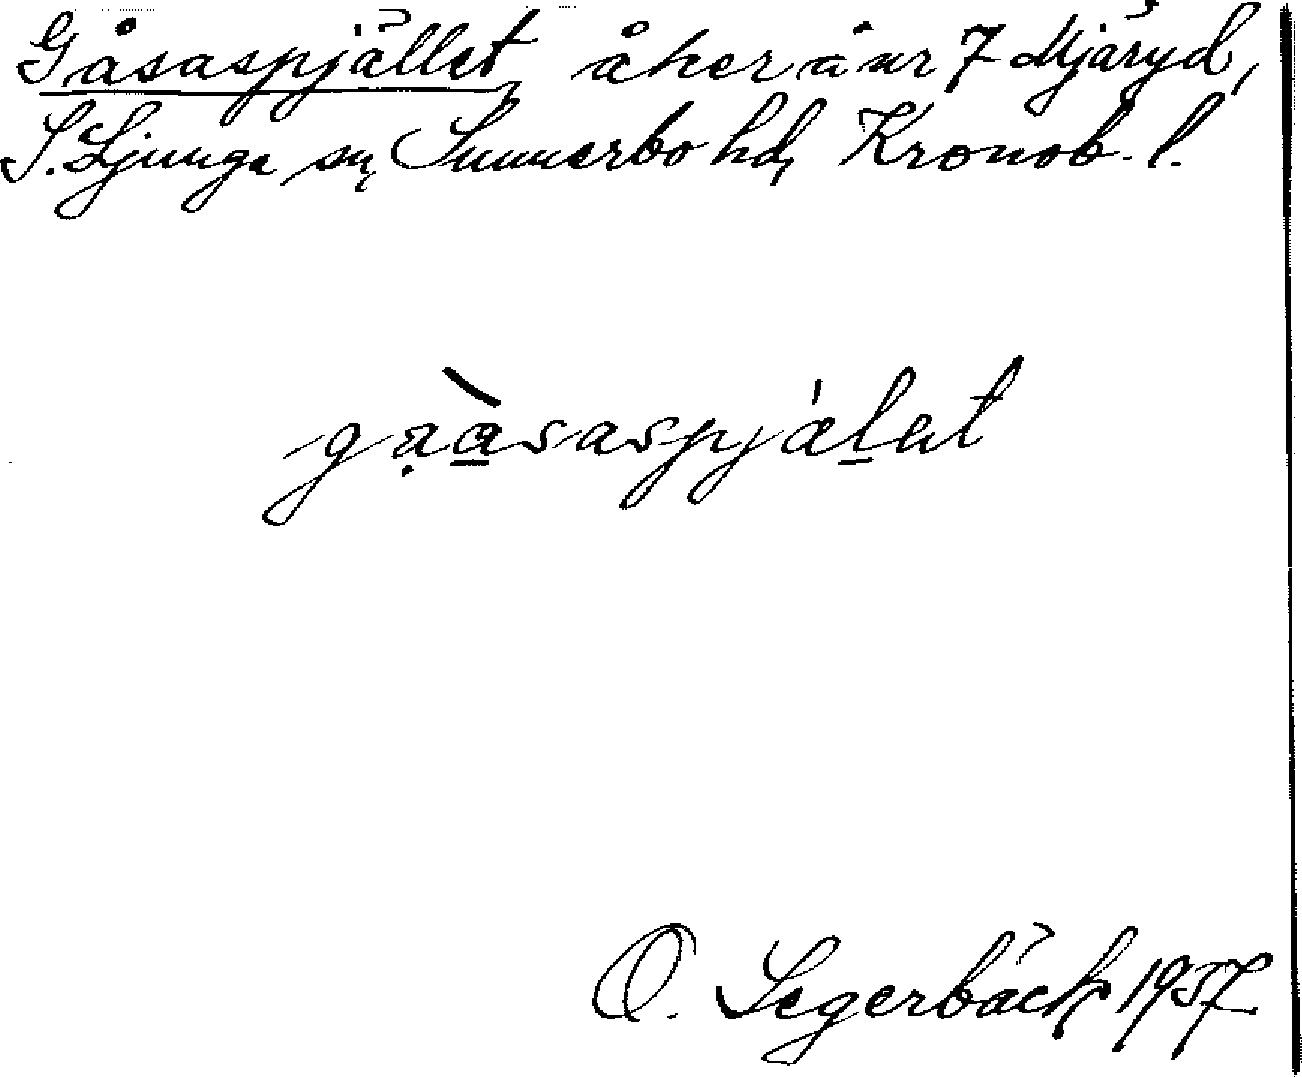 Gåsaspjället, åker å nr 7 Mjäryd,
S. Ljunga sn, Sunnerbo hd, Kronob. l.
gạå̠saspjäl̠ət
O. Segerbäck 1957